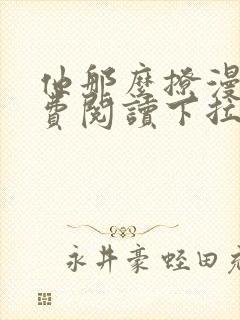 他那麼撩漫
費閱讀下拉
永井豪蛭田充